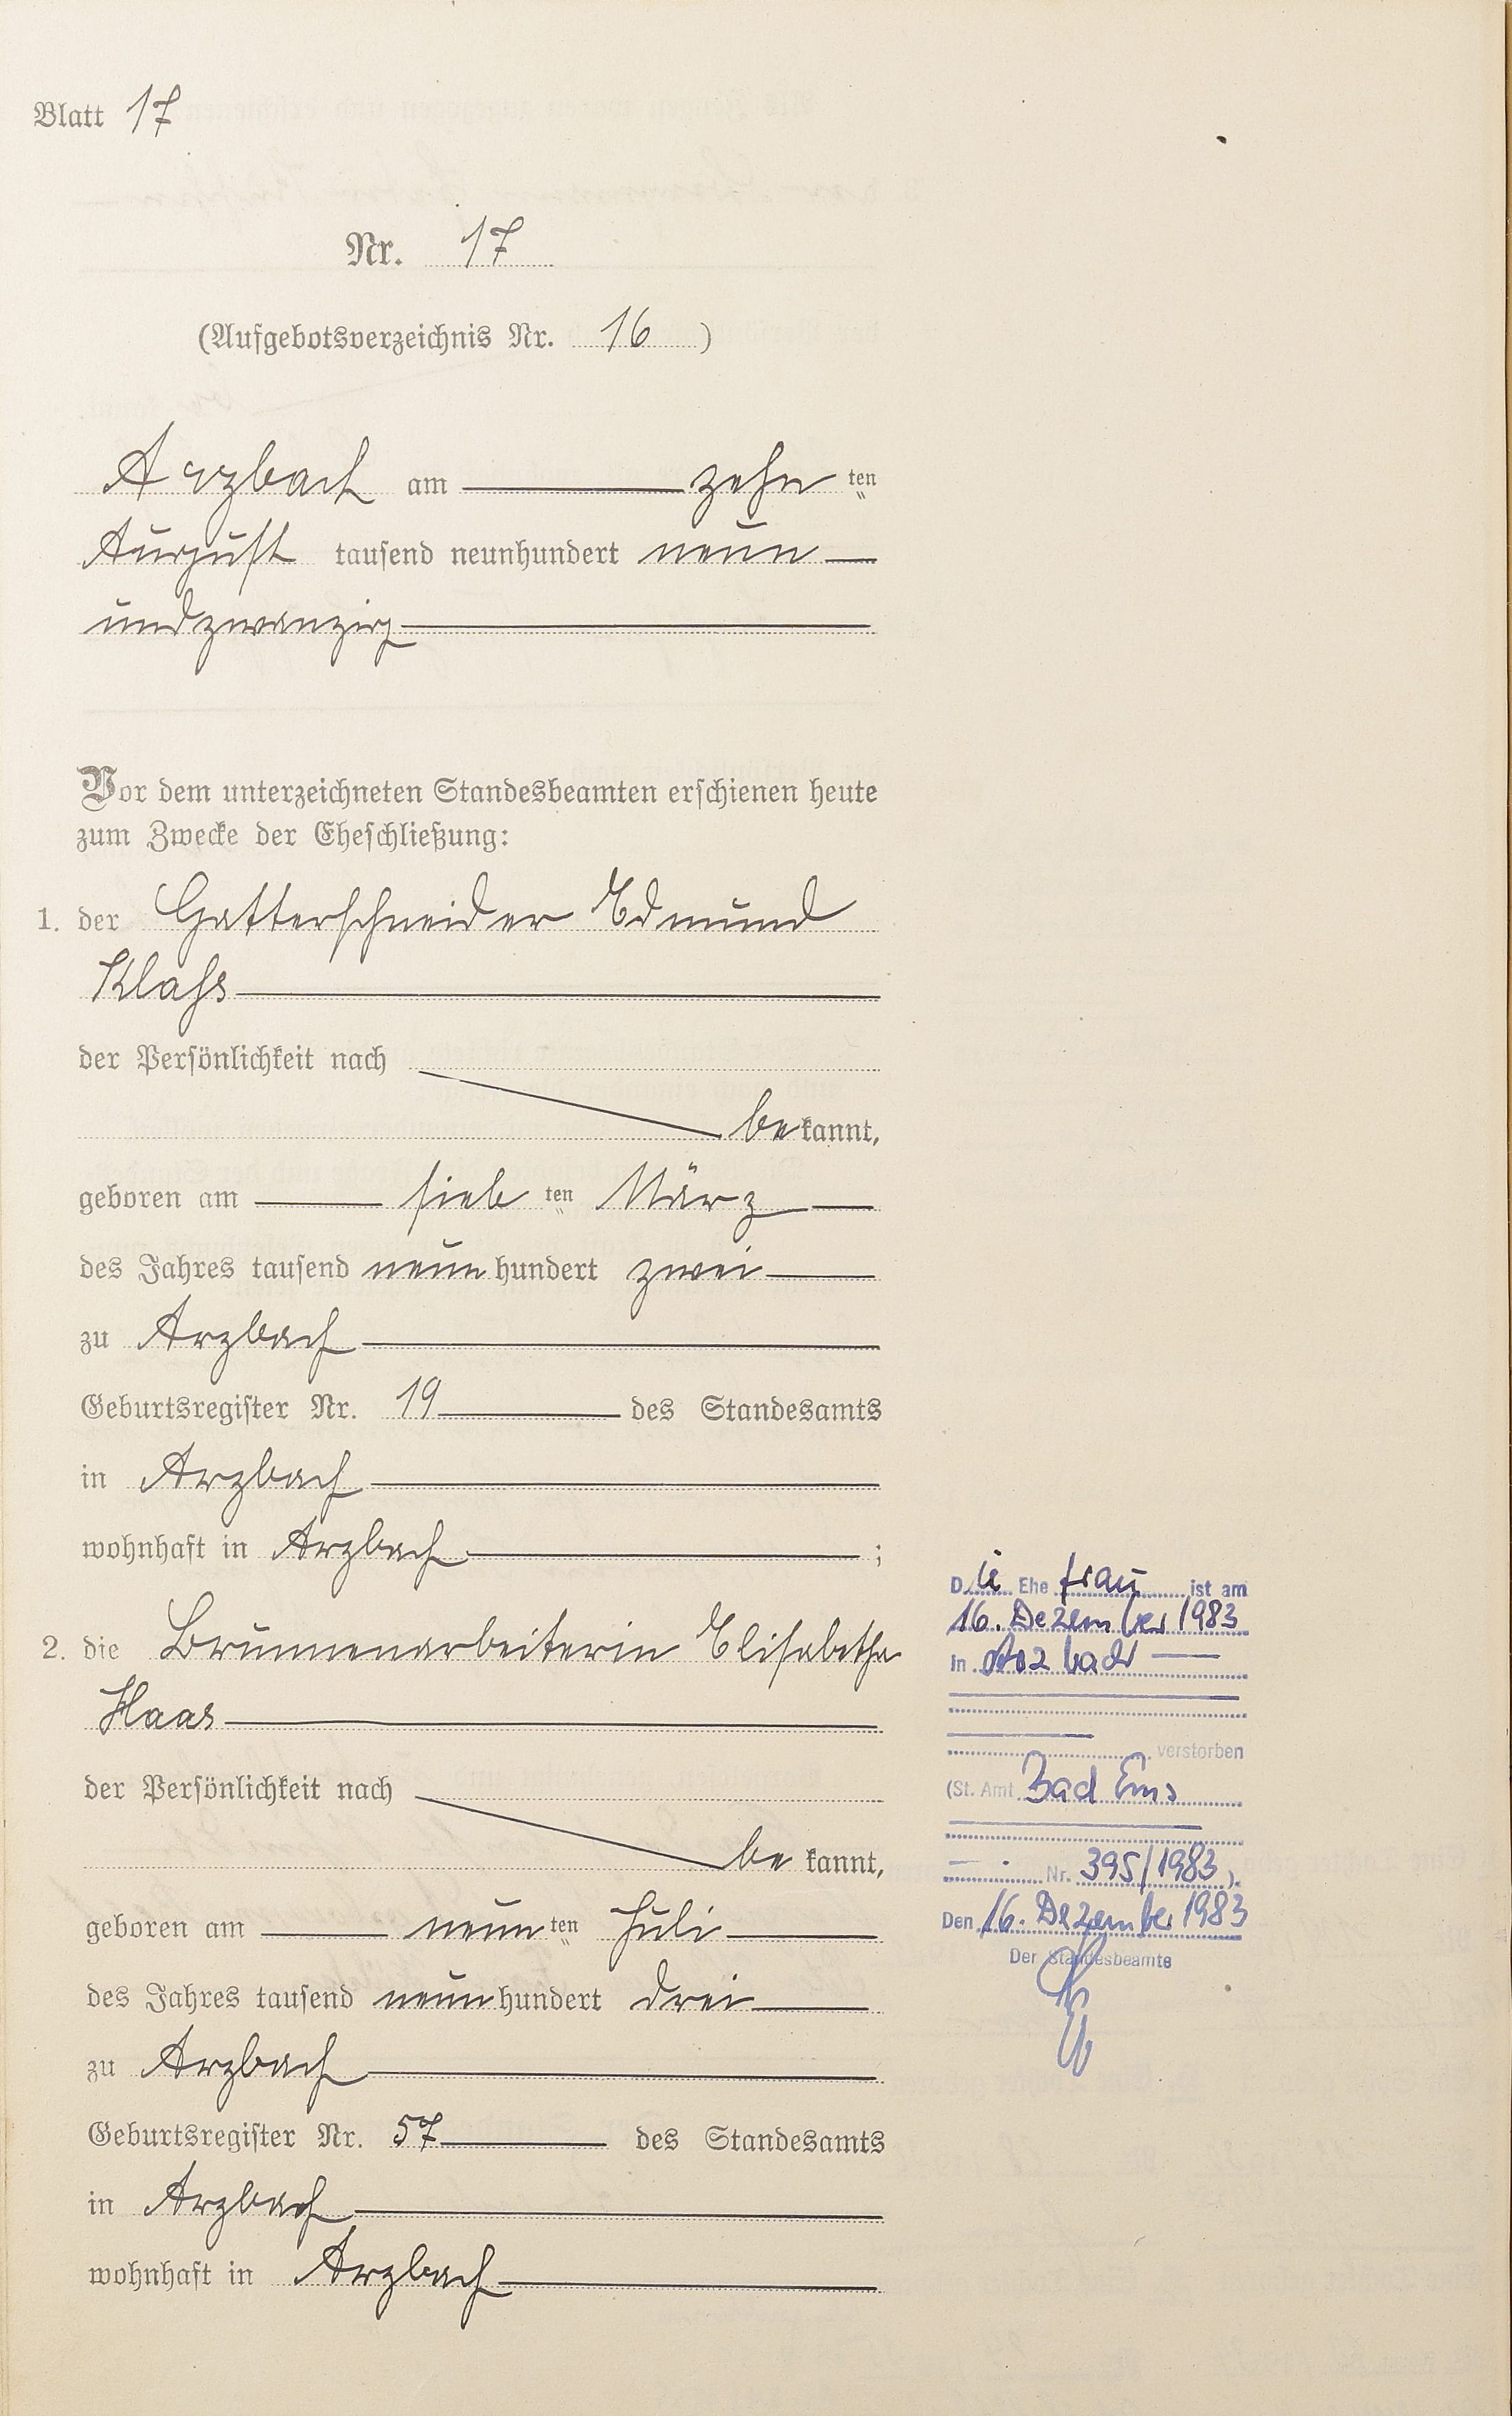 Blatt 17
Nr. 17
(Aufgebotsverzeichnis Nr. 16)
Arzbach am zehn ten
August tausend neunhundert neun
undzwanzig
Vor dem unterzeichneten Standesbeamten erschienen heute
zum Zwecke der Eheschließung:
1. der Gatterschneider Edmund
Klaß
der Persönlichkeit nach
be kannt,
geboren am sieb ten März
des Jahres tausend neun hundert zwei
zu Arzbach
Geburtsregister Nr. 19 des Standesamts
in Arzbach
wohnhaft in Arzbach ;
2. die Brunnenarbeiterin Elisabetha
Haas
der Persönlichkeit nach
be kannt,
geboren am neun ten Juli
des Jahres tausend neun hundert drei
zu Arzbach
Geburtsregister Nr. 57 des Standesamts
in Arzbach
wohnhaft in Arzbach
Die Ehe frau ist am
16. Dezember 1983
in Arzbach
verstorben
(St. Amt Bad Ems
Nr. 395/1983).
Den 16. Dezember 1983
Der Standesbeamte